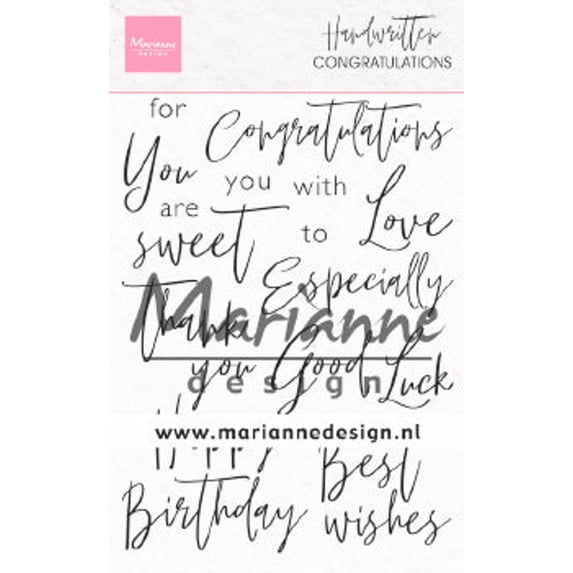 Marianne
design
Handwritten
CONGRATULATIONS
for
Congratulations
You
you with
Love
are
sweet
to
Especially
Marianne
Thank
you
Good
Luck
design
www.mariannedesign.nl
Best
Birthday
wishes